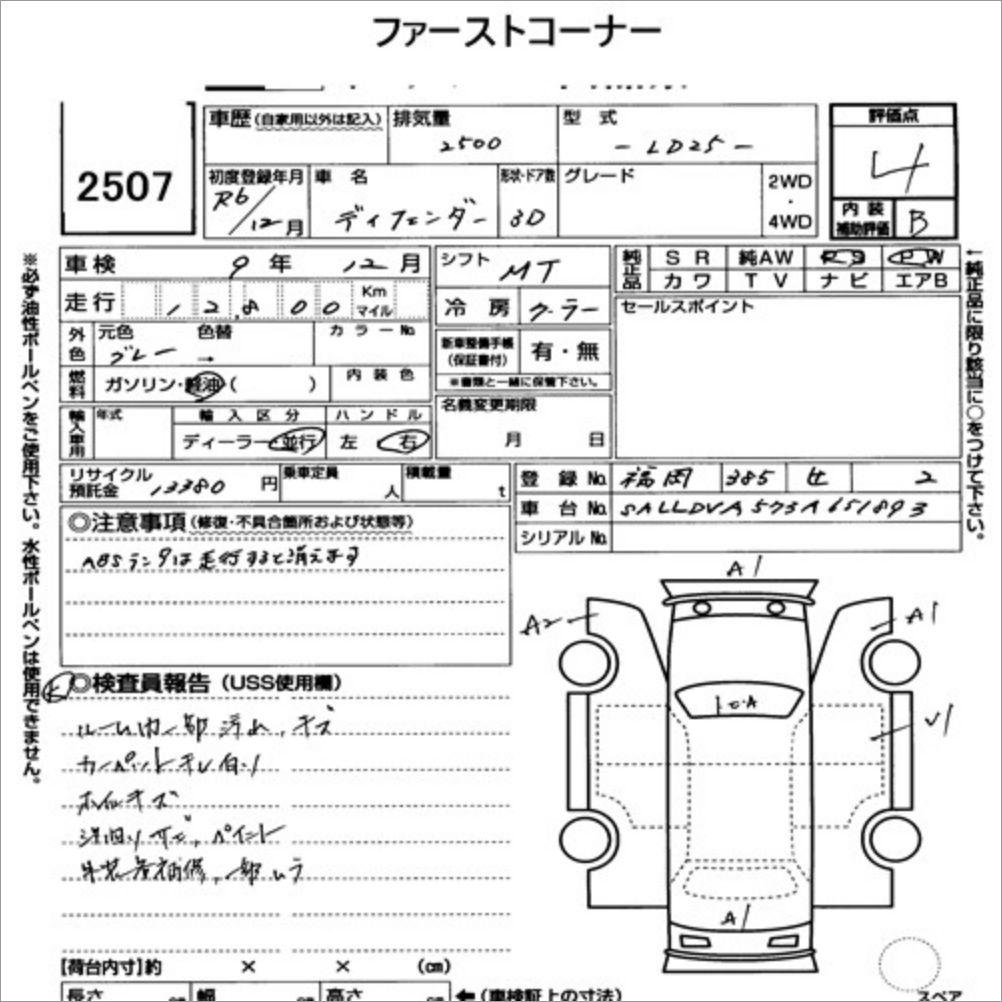 ファーストコーナー
2507
車歴(自家用以外は記入) 排気量 型式 評価点
2500 -LD25- 4
初度登録年月 車名 形状・ドア数 グレード 2WD・4WD 内装補助評価
R6/12月 ディフェンダー 3D B
車検 9年 12月 シフト MT 純正品 SR 純AW PS PW
走行 12,800 Km マイル 冷房 クーラー カワ TV ナビ エアB
外色 元色 色替 カラーNo. 新車整備手帳(保証書付) 有・無 セールスポイント
グレー → ※書類と一緒に保管下さい。
燃料 ガソリン・軽油( ) 内装色 名義変更期限
輸入車用 年式 輸入区分 ハンドル 月 日
ディーラー・並行 左 右
リサイクル預託金 13380円 乗車定員 人 積載量 t 登録No. 福岡 385 せ 2
車台No. SALLDVA573A651893
シリアルNo.
◎注意事項(修復・不具合箇所および状態等)
ABSランプは走行すると消えます
◎検査員報告(USS使用欄)
ルーム内一部汚れ、キズ
カーペットキレ
ホイルキズ
下回りサビ、ペイント
外装 補修、一部ムラ
A1
A2 A1
U1
A1
【荷台内寸】約 × × (cm)
長さ cm 幅 cm 高さ cm ←(車検証上の寸法)
スペア
※必ず油性ボールペンをご使用下さい。水性ボールペンは使用できません。
←純正品に限り該当に○をつけて下さい。